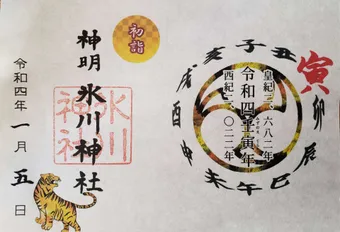 子丑寅卯辰巳午未申酉戌亥
皇紀二、六八二年
令和四壬寅年
西紀二、〇二二年
初詣
神明氷川神社
氷川
神社
令和四年一月五日